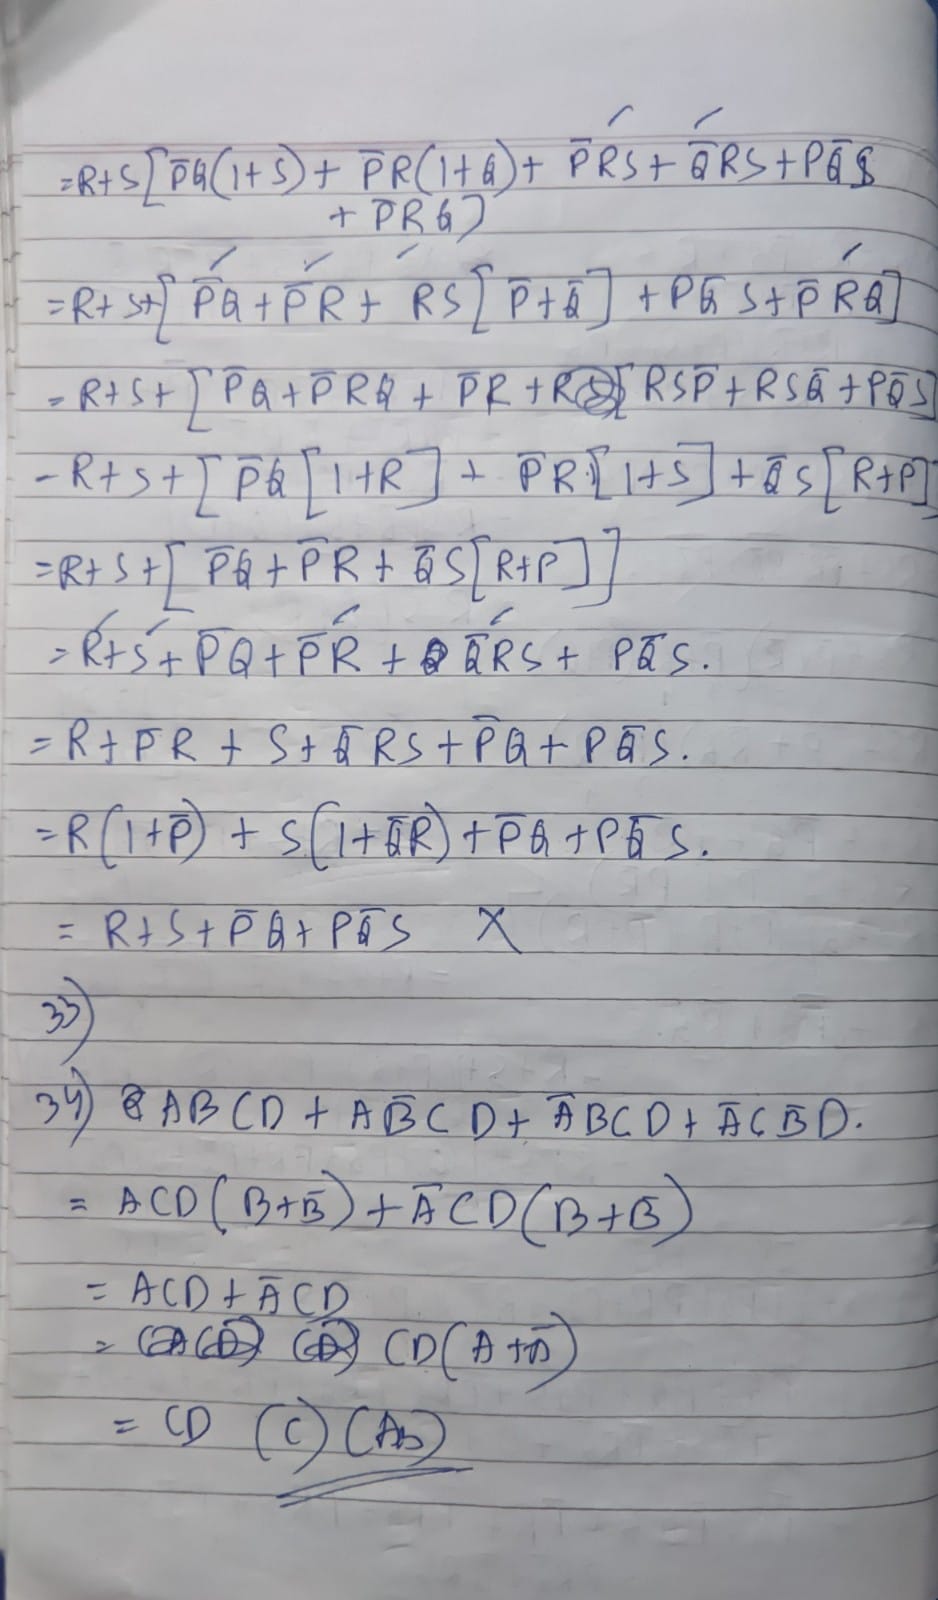 =R+S[P̅Q(1+S)+ P̅R(1+Q)+ P̅RS+Q̅RS+PQ̅S
+ P̅RQ]
=R+S+[P̅Q+P̅R+ RS[P̅+Q̅] +PQ̅S+P̅RQ]
= R+S+[P̅Q+P̅RQ + P̅R +R [RSP̅+RSQ̅+PQ̅S]
- R+S+[P̅Q[1+R] + P̅R[1+S]+Q̅S[R+P]
=R+S+[P̅Q+P̅R+Q̅S[R+P]]
= R+S+P̅Q+P̅R + Q̅RS+ PQ̅S.
= R+P̅R + S+Q̅RS+P̅Q+PQ̅S.
=R(1+P̅) + S(1+Q̅R)+P̅Q+PQ̅S.
= R+S+P̅Q+PQ̅S X
33)
34) ABCD+AB̅CD+A̅BCD+A̅CB̅D.
= ACD(B+B̅)+A̅CD(B+B̅)
= ACD+A̅CD
= CD(A+A̅)
= CD (C) (Ab)